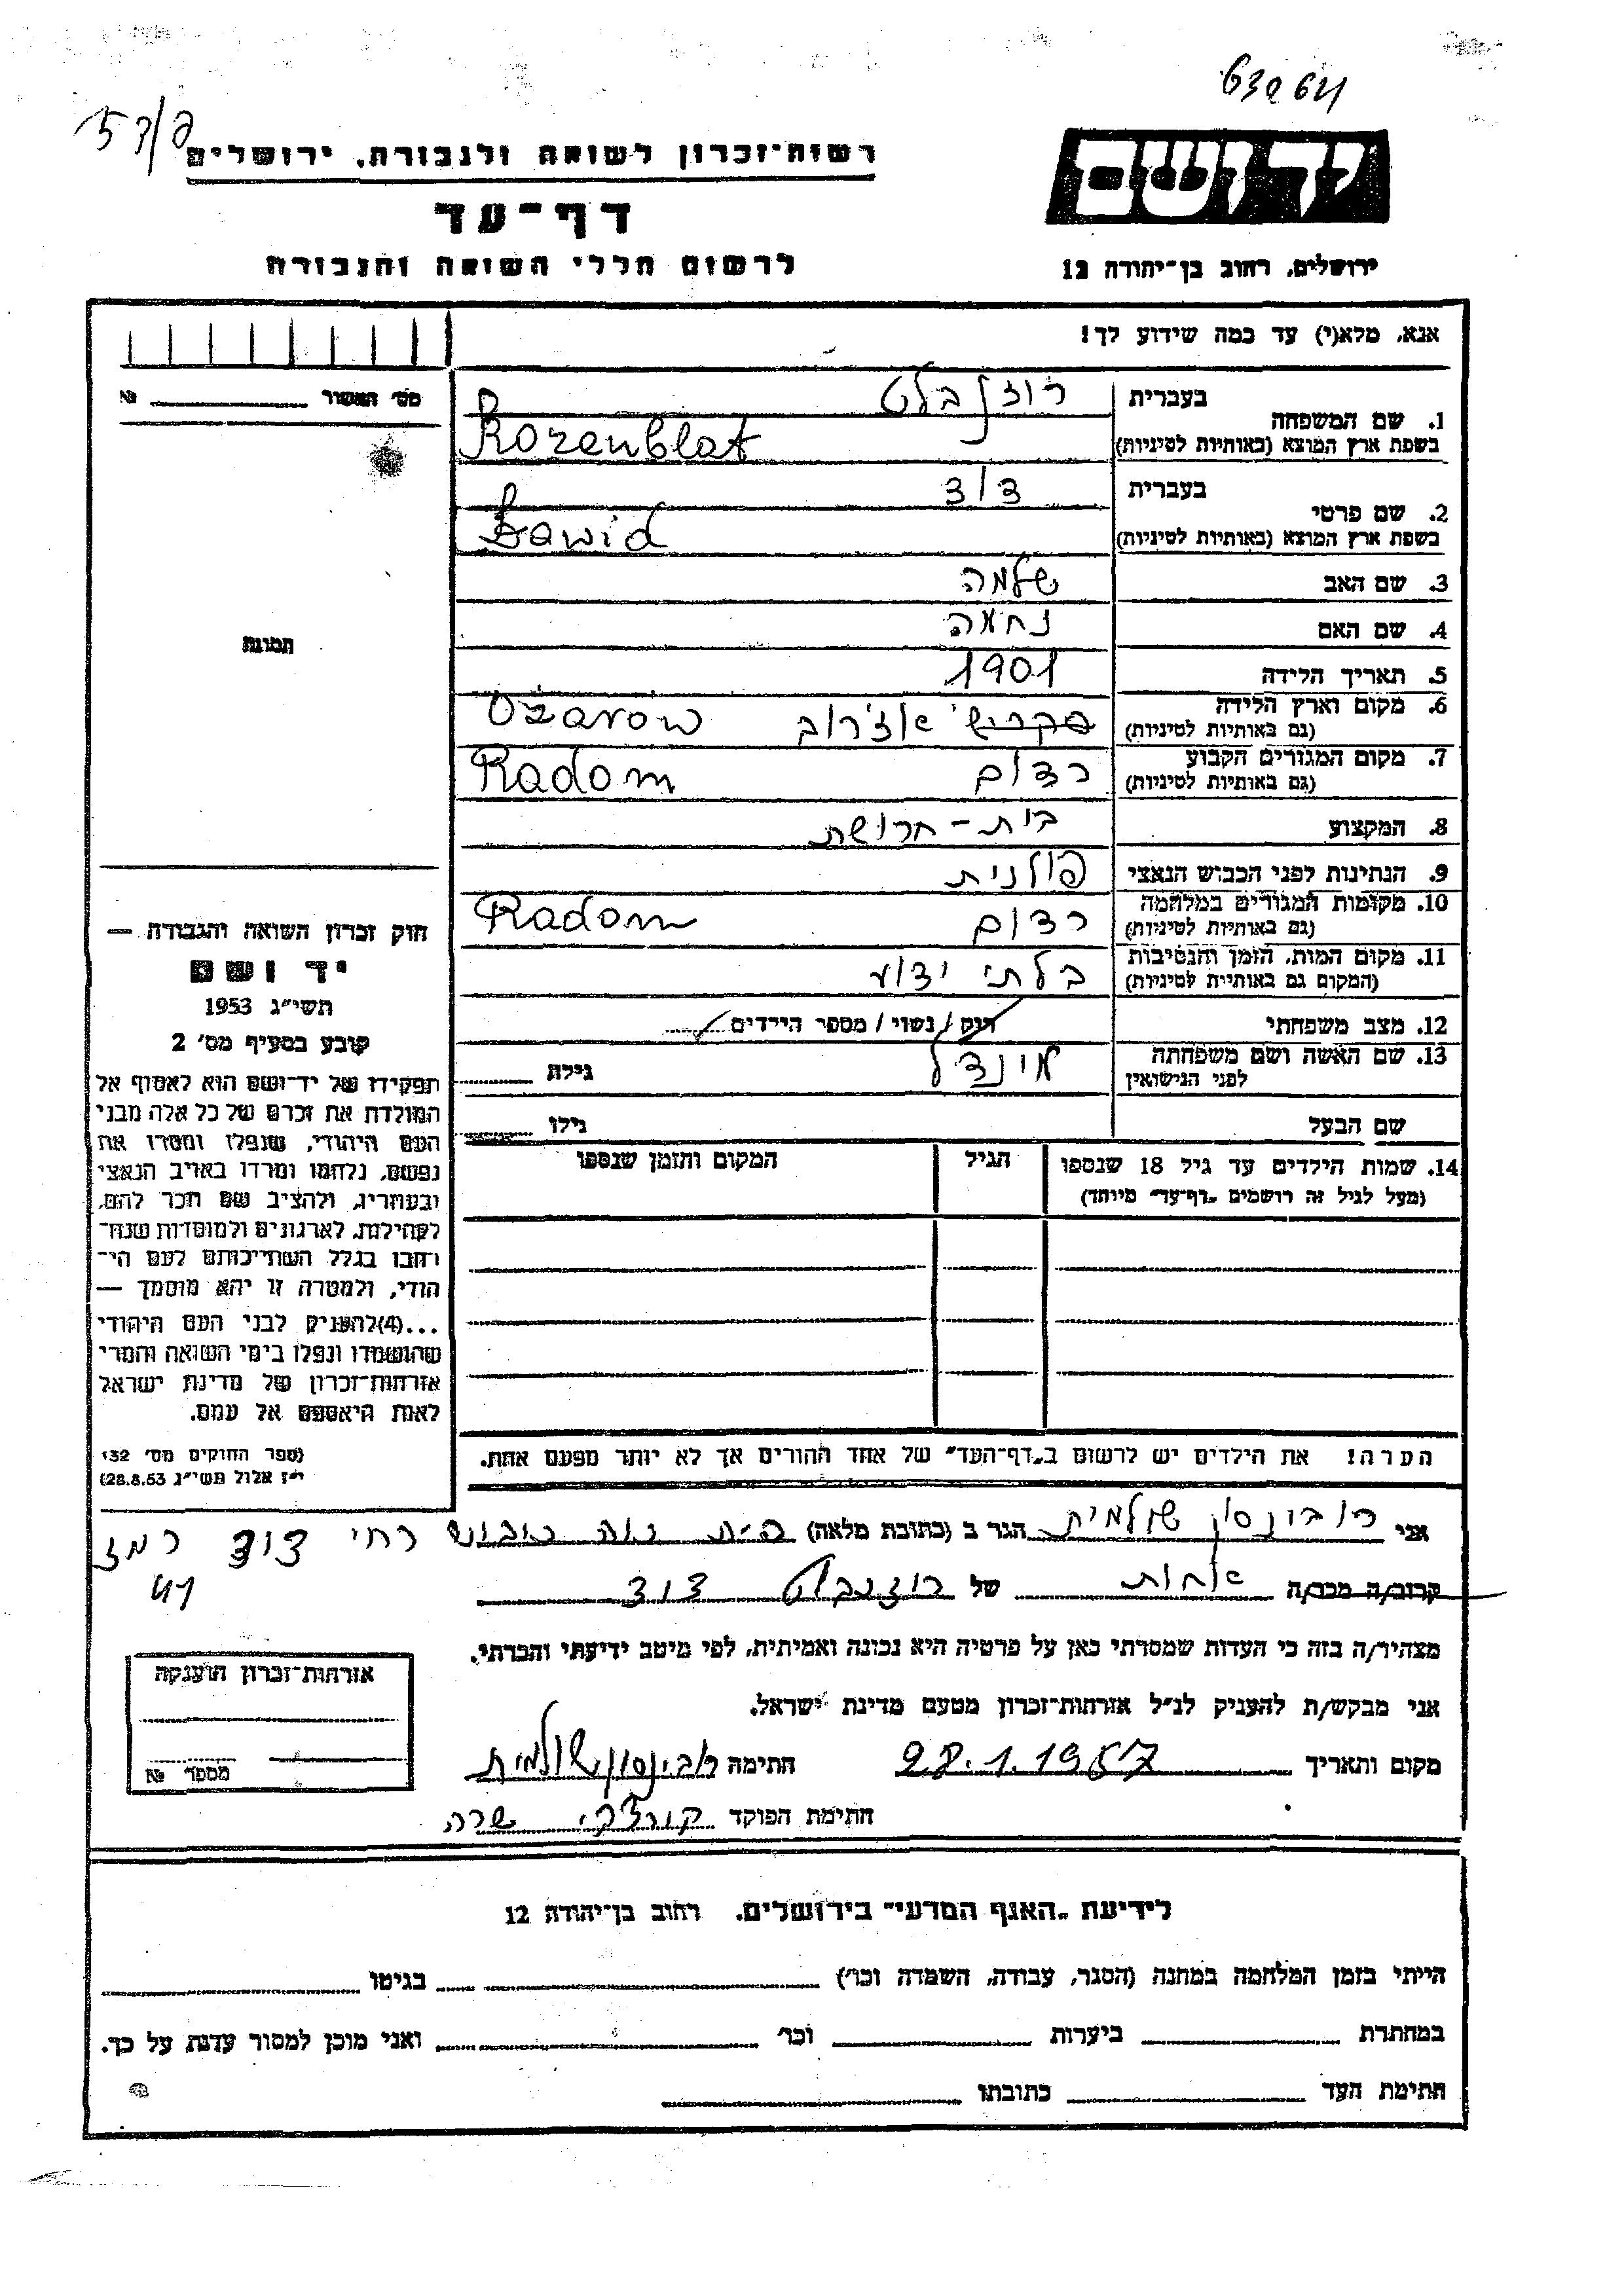 63964
53/פ
רשות־זכרון לשואה ולגבורה, ירושלים
יד ושם
דף־עד
לרשום חללי השואה והגבורה
ירושלים, רחוב בן־יהודה 12
אנא, מלא(י) עד כמה שידוע לך!
מס׳ האשור № 
1. שם המשפחה
בעברית רוזנבלט
בשפת ארץ המוצא (באותיות לטיניות) Rozenblat
2. שם פרטי
בעברית דוד
בשפת ארץ המוצא (באותיות לטיניות) Dawid
3. שם האב שלמה
4. שם האם נחמה
5. תאריך הלידה 1901
6. מקום וארץ הלידה אוז׳רוב Ożarow
(גם באותיות לטיניות)
7. מקום המגורים הקבוע רדום Radom
(גם באותיות לטיניות)
8. המקצוע בית-חרושת
9. הנתינות לפני הכבוש הנאצי פולנית
10. מקומות המגורים במלחמה רדום Radom
(גם באותיות לטיניות)
11. מקום המות, הזמן והנסיבות בלתי ידוע
(המקום גם באותיות לטיניות)
12. מצב משפחתי רווק/נשוי/מספר הילדים
13. שם האשה ושם משפחתה מינדל גילה
לפני הנישואין
שם הבעל גילו
14. שמות הילדים עד גיל 18 שנספו הגיל המקום והזמן שנספו
(מעל לגיל זה רושמים „דף־עד״ מיוחד)
הערה! את הילדים יש לרשום ב„דף־העד״ של אחד ההורים אך לא יותר מפעם אחת.
תמונה
חוק זכרון השואה והגבורה —
יד ושם
תשי״ג 1953
קובע בסעיף מס׳ 2
תפקידו של יד־ושם הוא לאסוף אל
המולדת את זכרם של כל אלה מבני
העם היהודי, שנפלו ומסרו את
נפשם, נלחמו ומרדו באויב הנאצי
ובעוזריו, ולהציב שם וזכר להם,
לקהילות, לארגונים ולמוסדות שנח־
רבו בגלל השתייכותם לעם הי־
הודי, ולמטרה זו יהא מוסמך —
...(4)להעניק לבני העם היהודי
שהושמדו ונפלו בימי השואה והמרי
אזרחות־זכרון של מדינת ישראל
לאות היאספם אל עמם.
(ספר החוקים מס׳ 132
י״ז אלול תשי״ג 28.8.53)
אני רובינסון שולמית הגר ב (כתובת מלאה) רחי דוד רמז
41
קרוב/ה מכר/ה אחות של רוזנבלט דוד
מצהיר/ה בזה כי העדות שמסרתי כאן על פרטיה היא נכונה ואמיתית, לפי מיטב ידיעתי והכרתי.
אני מבקש/ת להעניק לנ״ל אזרחות־זכרון מטעם מדינת ישראל.
מקום ותאריך 28.1.1957 חתימה רובינסון שולמית
חתימת הפוקד שרה
אזרחות־זכרון הוענקה
מספר №
לידיעת „האגף המדעי״ בירושלים, רחוב בן־יהודה 12
הייתי בזמן המלחמה במחנה (הסגר, עבודה, השמדה וכו׳) בגיטו
במחתרת ביערות וכו׳ ואני מוכן למסור עדות על כך.
חתימת העד כתובתו